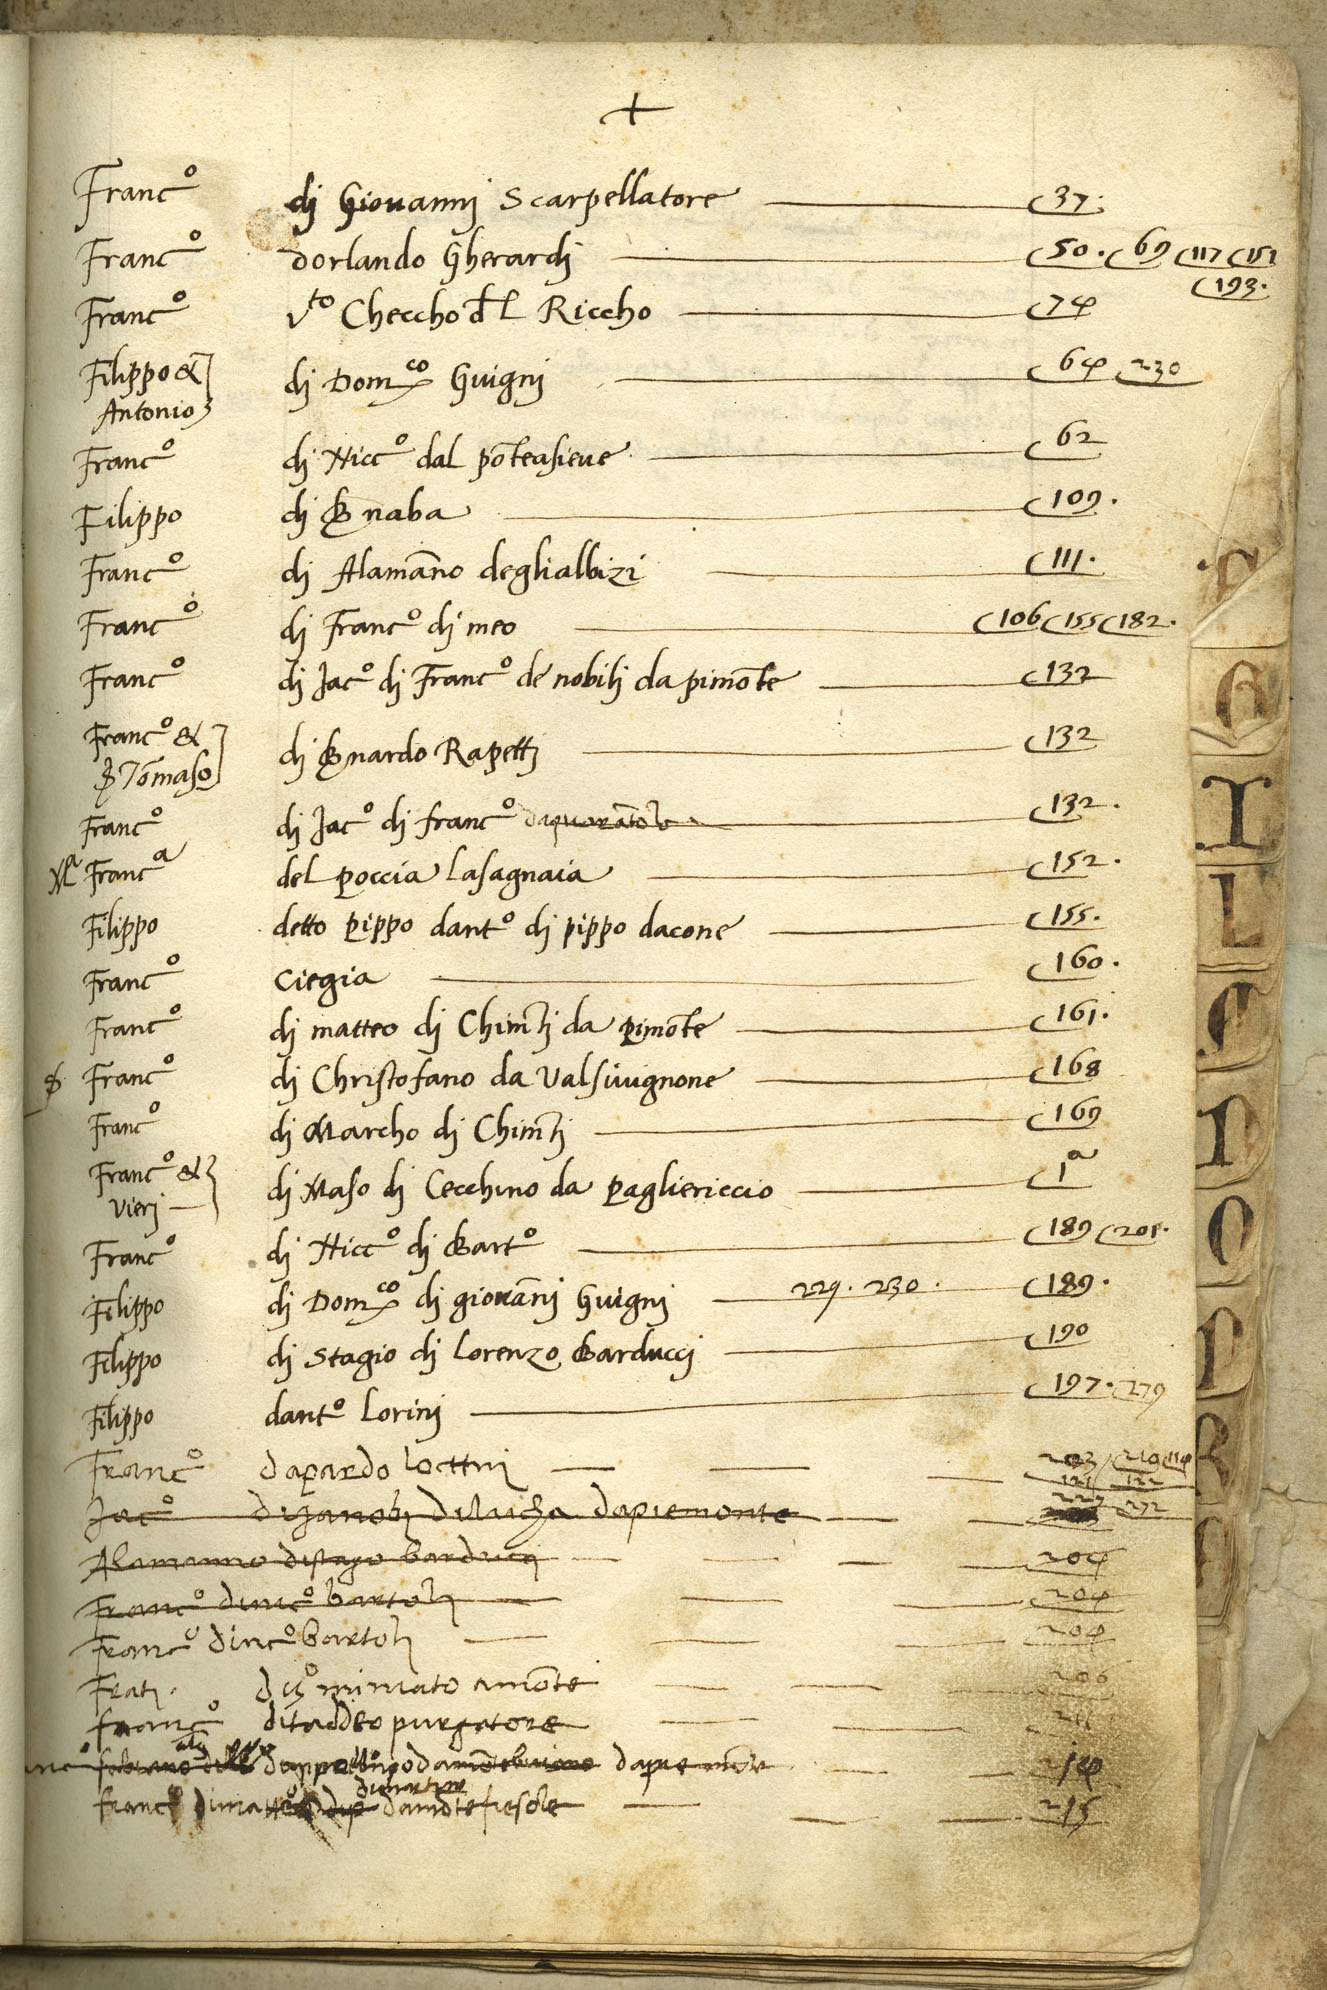 +
Franc.º di Giovanni Scarpellatore c 37.
Franc.º dorlando Gherardi c 50. c 69 c 117 c 151
c 193.
Franc.º Vto Checcho dl Riccho c 74
Filippo & di Domco Guigni c 64 c 230
Antonio
Franc.º di Niccº dal põteasieve c 62
Filippo di Bnaba c 109.
Franc.º di Alamãno deglialbizi c 111.
Franc.º di Franc.º di meo c 106 c 155 c 182.
Franc.º di Jac.º di Franc.º de nobili da pimõte c 132
Franc.º & di Bnardo Rapetti c 132
Tõmaso
Franc.º di Jac.º di franc.º c 132.
Mª Francª del poccia lasagnaia c 152.
Filippo detto pippo dantº di pippo dacone c 155.
Franc.º Ciegia c 160.
Franc.º di matteo di Chimẽti da pimõte c 161.
Franc.º di Christofano da Valsivignone c 168
Franc.º di Marcho di Chimẽti c 169
Franc.º & di Maso di Cecchino da pagliericcio c 1ª
Vieri
Franc.º di Niccº di Bartº c 189 c 201.
Filippo di Domco di giovãni Guigni 229. 230. c 189.
Filippo di Stagio di Lorenzo Barducci c 190
Filippo dantº Lorini c 197. c 279
Franc.º dapardo lottini 203
121 122
Jac.º dizanobi dilucha dapiemonte 227 272
Alamanno distagio barducci 204
Franc.º dinicº bartoli 204
Franc.º dinicº bartoli 204
Frati di sº miniato amõte 206
franc.º ditaddeo purgatore 211
214
dimartino
franc.º dimatteo damõtefiesole 215
G
I
L
O
R